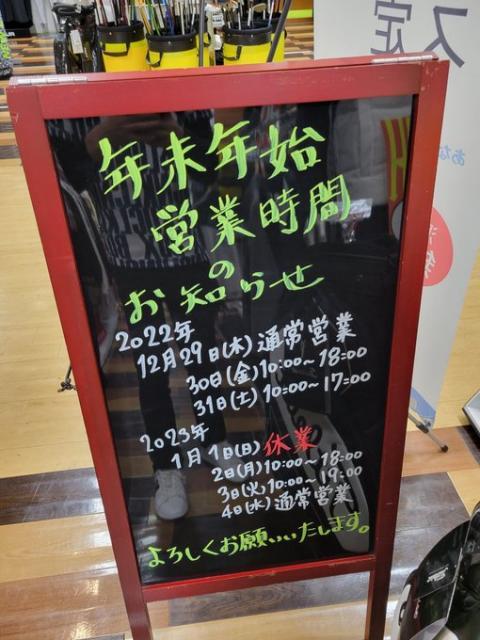 年末年始
営業時間
の
お知らせ
2022年
12月29日(木)通常営業
30日(金)10:00~18:00
31日(土)10:00~17:00
2023年
1月1日(日)休業
2日(月)10:00~18:00
3日(火)10:00~19:00
4日(水)通常営業
よろしくお願いいたします。
ス定
あな